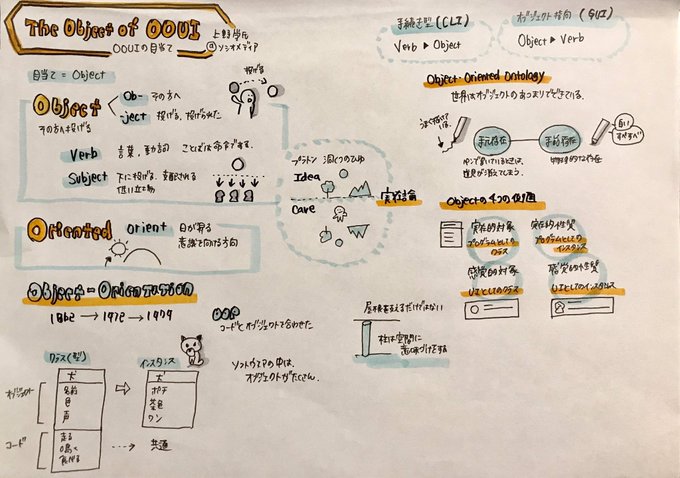 The Object of OOUI
OOUIの目当て
上野学氏
@ソシオメディア
目当て = Object
投げる
Object
その方へ投げる
Ob- その方へ
-ject 投げる, 投げられた
Verb 言葉, 動詞
Subject 下に投げる, 支配される
低い立場
Oriented
orient 日が昇る
意識を向ける方向
Object-Orientation
1962 → 1972 → 1979
OOP
コードとオブジェクトで合わせた
クラス(型)
インスタンス
犬
名前
色
声
犬
ポチ
茶色
ワン
オブジェクト
コード
走る
鳴く
共通
ソフトウェアの中は、
オブジェクトがたくさん.
プラトン 洞くつのひゆ
Idea
Cave
実在論
手続き型(CLI)
Verb ▶ Object
オブジェクト指向(GUI)
Object ▶ Verb
Object-Oriented Ontology
世界はオブジェクトのあつまりでできている.
手元存在
手前存在
白い
すべすべ
ペンで書いているときは、
意識が消えてしまう.
Objectの4つの位相
実在的対象
プログラムとしての
クラス
実在的性質
プログラムとしての
インスタンス
感覚的対象
UIとしてのクラス
感覚的性質
UIとしてのインスタンス
屋根を支えるだけではない
柱は空間に
意味づけをする